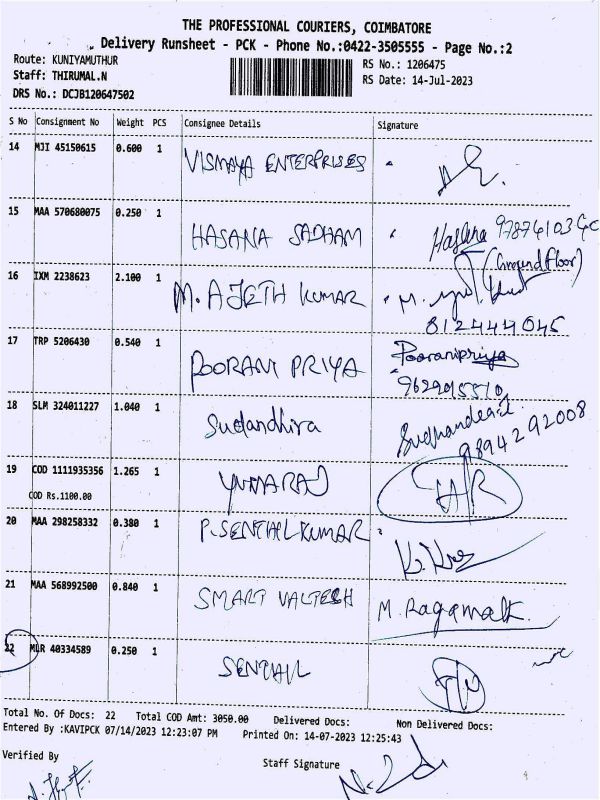 THE PROFESSIONAL COURIERS, COIMBATORE
Delivery Runsheet - PCK - Phone No.:0422-3505555 - Page No.:2
Route: KUNIYAMUTHUR RS No.: 1206475
Staff: THIRUMAL.N RS Date: 14-Jul-2023
DRS No.: DCJB120647502
S No Consignment No Weight PCS Consignee Details Signature
14 MJI 45150615 0.600 1 VISMAYA ENTERPRISES
15 MAA 570680075 0.250 1 HASANA SADHAM Hasana
(Ground floor)
16 IXM 2238623 2.100 1 M. AJETH KUMAR
812444045
17 TRP 5206430 0.540 1 POORANI PRIYA Pooranipriya
18 SLM 324011227 1.040 1 Sudandhira
9894292008
19 COD 1111935356 1.265 1 YUVARAJ
COD Rs.1100.00
20 MAA 298258332 0.380 1 P.SENTHILKUMAR
21 MAA 568992500 0.840 1 SMART M.
22 MLR 40334589 0.250 1 SENTHIL
Total No. Of Docs: 22 Total COD Amt: 3050.00 Delivered Docs: Non Delivered Docs:
Entered By :KAVIPCK 07/14/2023 12:23:07 PM Printed On: 14-07-2023 12:25:43
Verified By Staff Signature